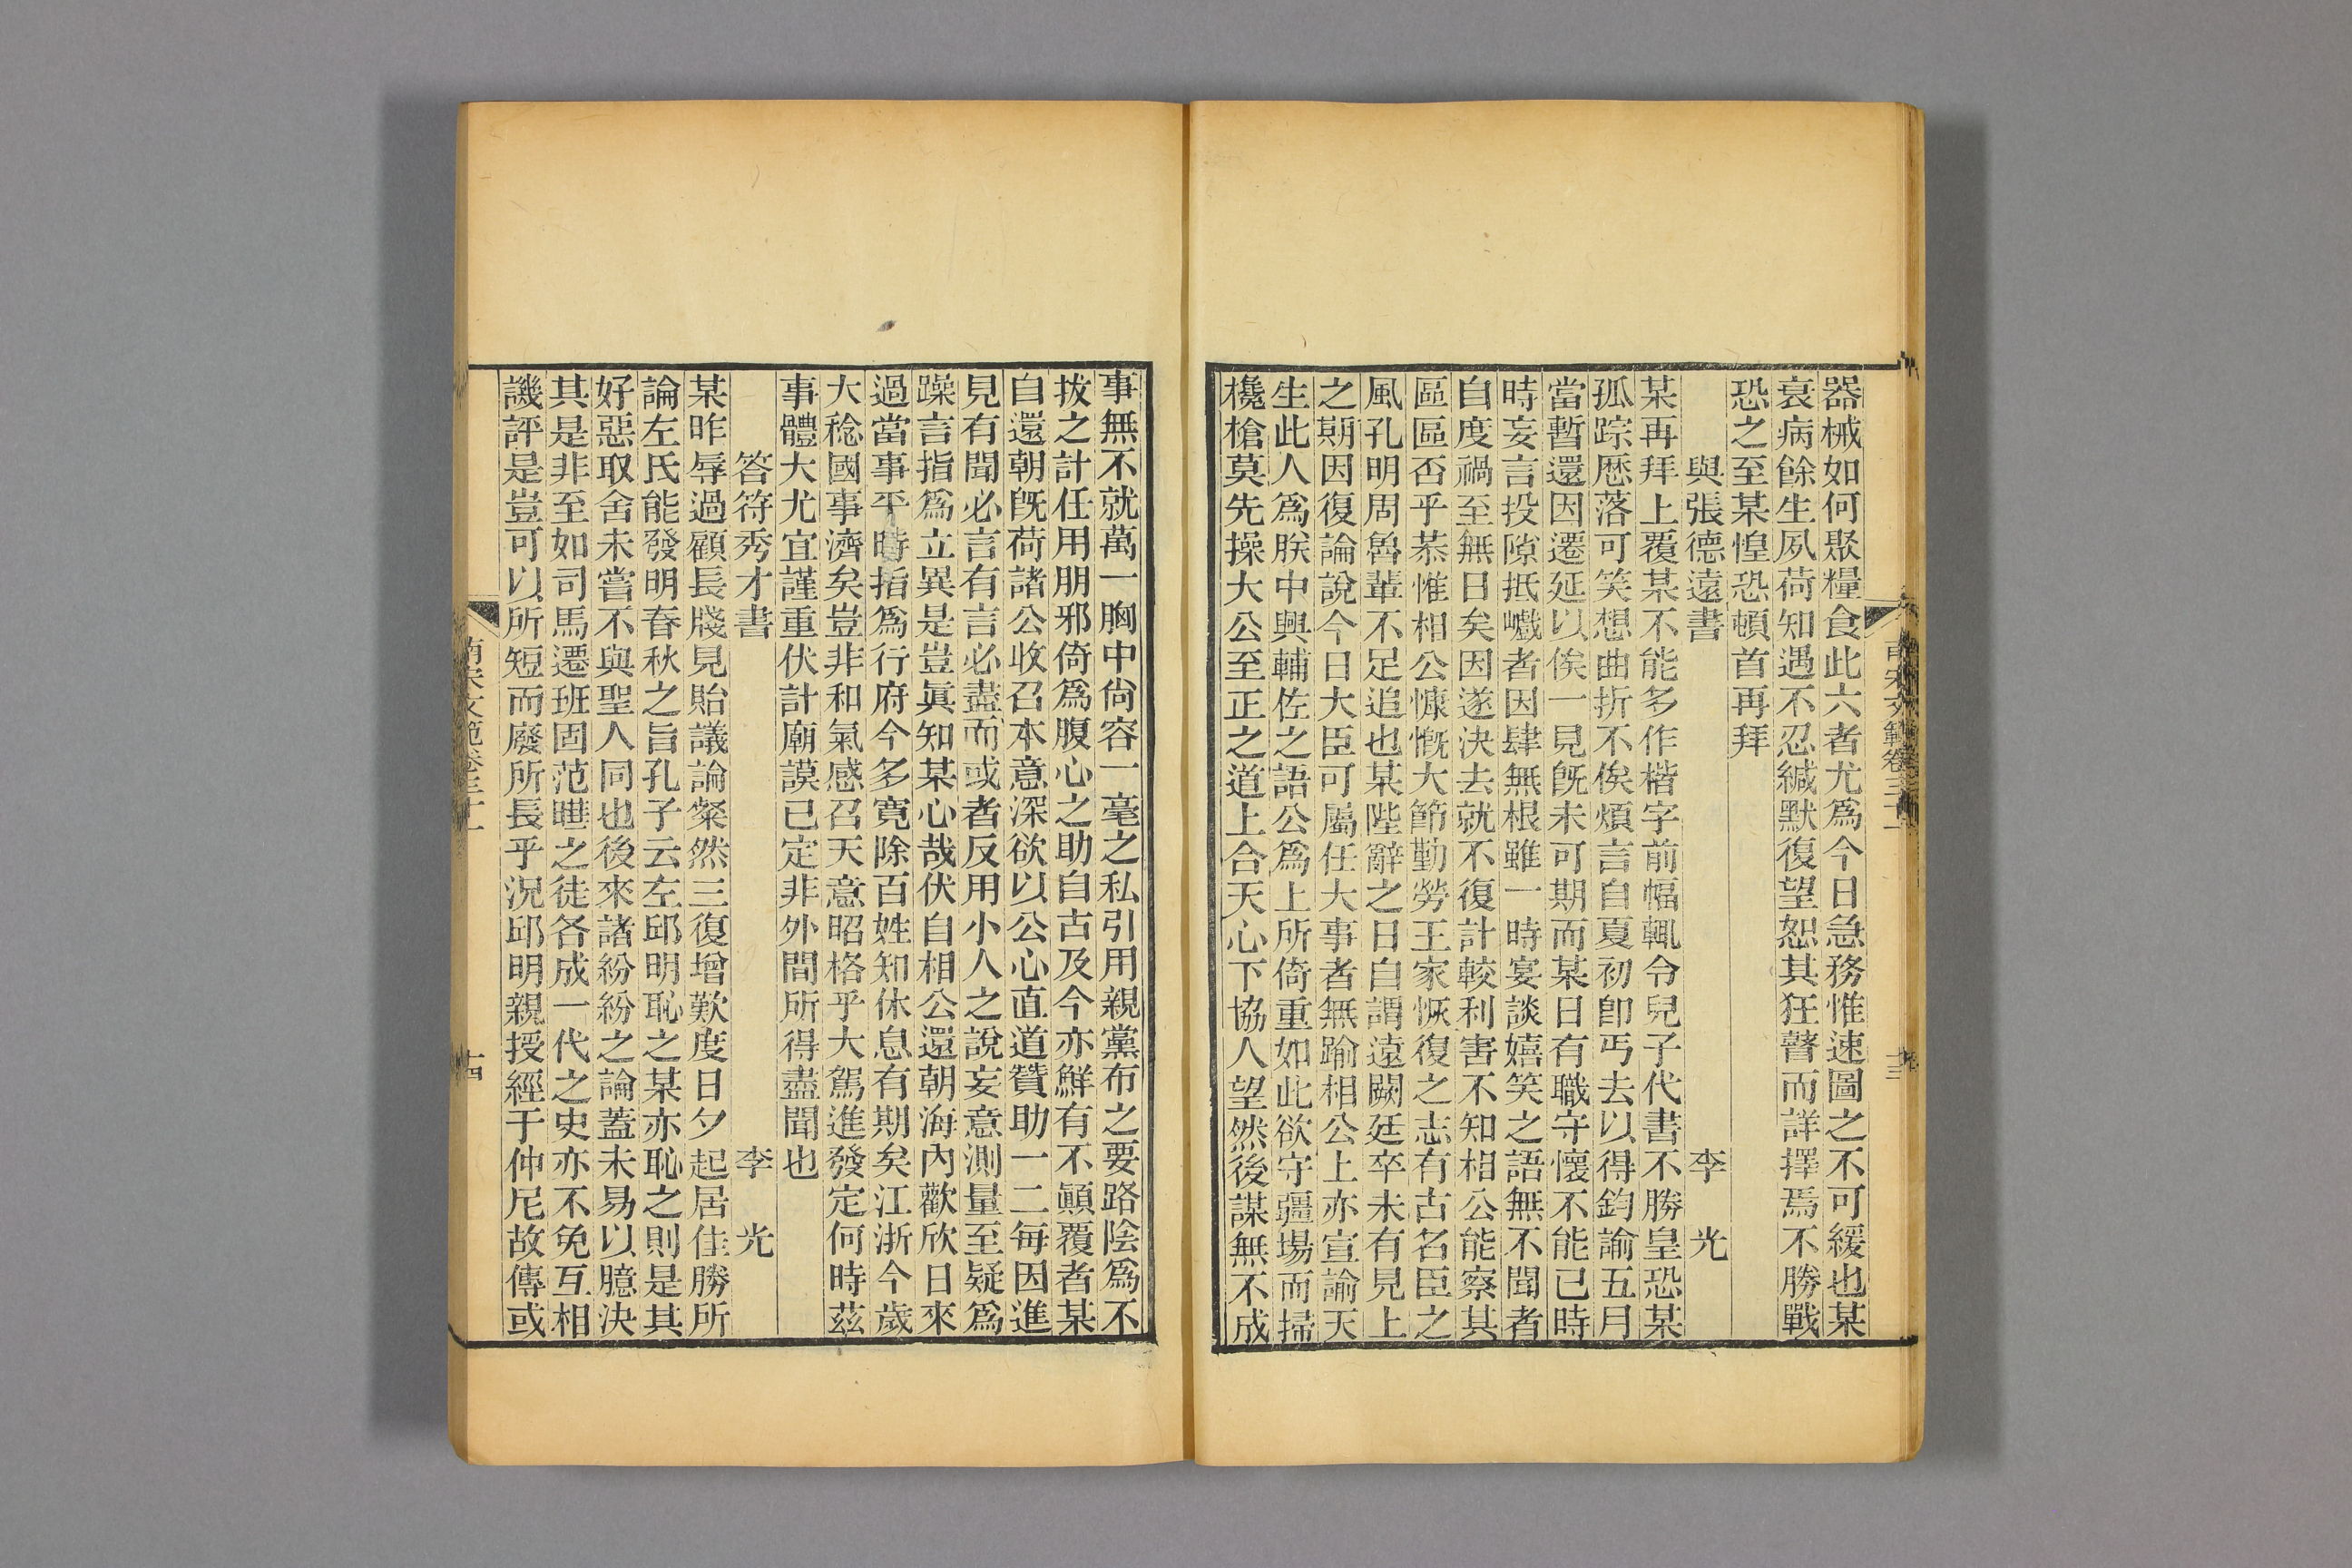 器械如何聚糧食此六者尤爲今日急務惟速圖之不可緩也某
衰病餘生夙荷知遇不忍緘默復望恕其狂瞽而詳擇焉不勝戰
恐之至某惶恐頓首再拜
與張德遠書　李　光
某再拜上覆某不能多作楷字前幅輒令兒子代書不勝皇恐某
孤踪歷落可笑想曲折不俟煩言自夏初卽丐去以得鈞諭五月
當暫還因遷延以俟一見旣未可期而某日有職守懷不能已時
時妄言投隙抵巇者因肆無根雖一時宴談嬉笑之語無不聞者
自度禍至無日矣因遂決去就不復計較利害不知相公能察其
區區否乎恭惟相公慷慨大節勤勞王家恢復之志有古名臣之
風孔明周魯輩不足追也某陛辭之日自謂遠闕廷卒未有見上
之期因復論說今日大臣可屬任大事者無踰相公上亦宣諭天
生此人爲朕中興輔佐之語公爲上所倚重如此欲守疆場而掃
欃槍莫先操大公至正之道上合天心下協人望然後謀無不成
事無不就萬一胸中尙容一毫之私引用親黨布之要路陰爲不
拔之計任用朋邪倚爲腹心之助自古及今亦鮮有不顚覆者某
自還朝旣荷諸公收召本意深欲以公心直道贊助一二每因進
見有聞必言有言必盡而或者反用小人之說妄意測量至疑爲
躁言指爲立異是豈眞知某心哉伏自相公還朝海內歡欣日來
過當事平時指爲行府今多寬除百姓知休息有期矣江浙今歲
大稔國事濟矣豈非和氣感召天意昭格乎大駕進發定何時茲
事體大尤宜謹重伏計廟謨已定非外間所得盡聞也
答符秀才書　李　光
某昨辱過顧長牋見貽議論粲然三復增歎度日夕起居佳勝所
論左氏能發明春秋之旨孔子云左邱明恥之某亦恥之則是其
好惡取舍未嘗不與聖人同也後來諸紛紛之論蓋未易以臆決
其是非至如司馬遷班固范曄之徒各成一代之史亦不免互相
譏評是豈可以所短而廢所長乎況邱明親授經于仲尼故傳或
南宋文範卷三十一
十四